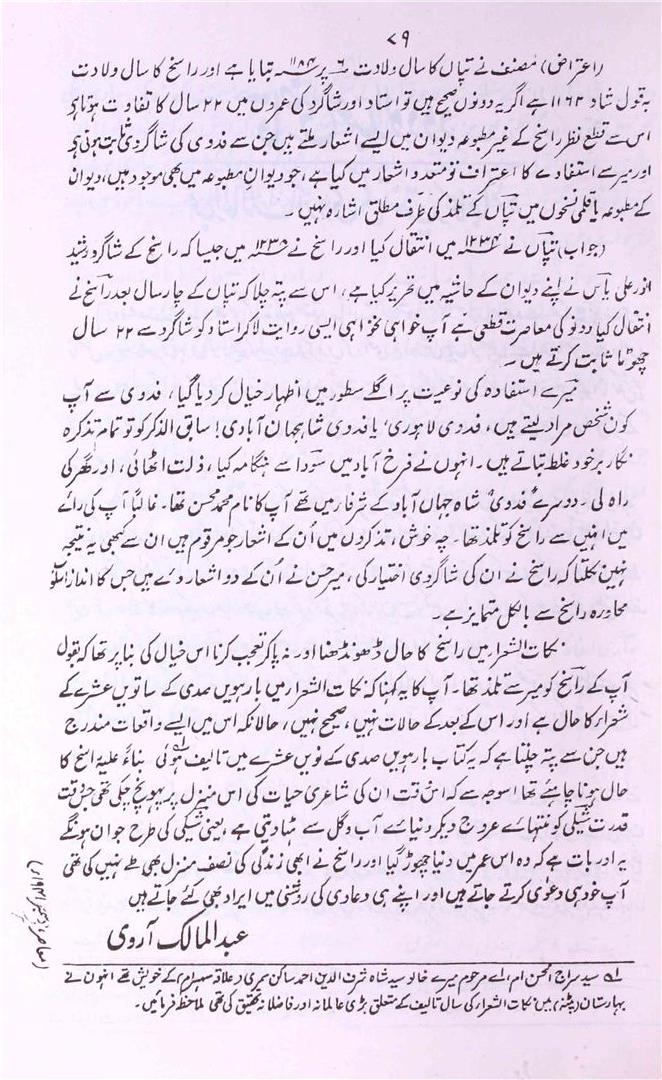 ۷۹
(اعتراض) مصنف نے تپاں کا سال ولادت ۶ پر ۱۱۸۴ھ بتایا ہے اور راسخ کا سال ولادت
بہ قول شاد ۱۱۶۲ ہے اگر یہ دونوں صحیح ہیں تو استاد اور شاگرد کی عمروں میں ۲۲ سال کا تفاوت ہوتا ہے
اس سے قطع نظر راسخ کے غیر مطبوعہ دیوان میں ایسے اشعار ملتے ہیں جن سے فدوی کی شاگردی ثابت ہوتی ہے
اور میر سے استفادے کا اعتراف تو متعدد اشعار میں کیا ہے، جو دیوان مطبوعہ میں بھی موجود ہیں، دیوان
کے مطبوعہ یا قلمی نسخوں میں تپاں کے تلمذ کی طرف مطلق اشارہ نہیں۔
(جواب) تپاں نے ۱۲۳۴ھ میں انتقال کیا اور راسخ نے ۱۲۳۸ھ میں جیسا کہ راسخ کے شاگرد رشید
انور علی یاس نے اپنے دیوان کے حاشیہ میں تحریر کیا ہے، اس سے پتہ چلا کہ تپاں کے چار سال بعد راسخ نے
انتقال کیا دونو کی معاصرت قطعی ہے آپ خواہی نخواہی ایسی روایت لاکر استاد کو شاگرد سے ۲۲ سال
چھوٹا ثابت کرتے ہیں۔
میر سے استفادہ کی نوعیت پر اگلے سطور میں اظہار خیال کر دیا گیا، فدوی سے آپ
کون شخص مراد لیتے ہیں، فدوی لاہوری، یا فدوی شاہجہان آبادی! سابق الذکر کو تو تمام تذکرہ
نگار برخود غلط بتاتے ہیں۔ انہوں نے فرخ آباد میں سودا سے ہنگامہ کیا، ذلت اٹھائی، اور گھر کی
راہ لی۔ دوسرے فدوی شاہ جہاں آباد کے شرفا میں تھے آپ کا نام محمد محسن تھا۔ غالباً آپ کی رائے
میں انہیں سے راسخ کو تلمذ تھا۔ چہ خوش، تذکروں میں اُن کے اشعار جو مرقوم ہیں ان سے کبھی یہ نتیجہ
نہیں نکلتا کہ راسخ نے ان کی شاگردی اختیار کی، میر حسن نے اُن کے دو اشعار دے ہیں جس کا انداز اسلوب
محاورہ راسخ سے بالکل متمایز ہے۔
نکات الشعراء میں راسخ کا حال ڈھونڈھنا اور نہ پاکر تعجب کرنا اس خیال کی بنا پر تھا کہ بقول
آپ کے راسخ کو میر سے تلمذ تھا۔ آپ کا یہ کہنا کہ نکات الشعراء میں بارہویں صدی کے ساتویں عشرے کے
شعراء کا حال ہے اور اس کے بعد کے حالات نہیں، صحیح نہیں، حالانکہ اس میں ایسے واقعات مندرج
ہیں جن سے پتہ چلتا ہے کہ یہ کتاب بارہویں صدی کے نویں عشرے میں تالیف ہوئی بناءً علیہ اسخ کا
حال ہونا چاہئے تھا اسوجہ سے کہ اس وقت ان کی شاعری حیات کی اس منزل پر پہونچ چکی تھی جس وقت
قدرت شکیی کو منتہائے عروج دیکر دنیائے آب و گل سے ہٹا دیتی ہے، یعنی شکیی کی طرح جوان ہونگے
یہ اور بات ہے کہ وہ اس عمر میں دنیا چھوڑ گیا اور راسخ نے ابھی زندگی کی نصف منزل بھی طے نہیں کی تھی
آپ خود ہی دعویٰ کرتے جاتے ہیں اور اپنے ہی دعاوی کی روشنی میں ایراد بھی کئے جاتے ہیں
عبد المالک آروی
سید سراج الحسن ام، اے مرحوم میرے خالو سید شاہ شرف الدین احمد ساکن بمری (علاقہ سہسرام) کے خویش تھے انہوں نے
بہارستان (پٹنہ) میں نکات الشعراء کی سال تالیف کے متعلق بڑی عالمانہ اور فاضلانہ تحقیق کی تھی ملاحظہ فرمائیں۔